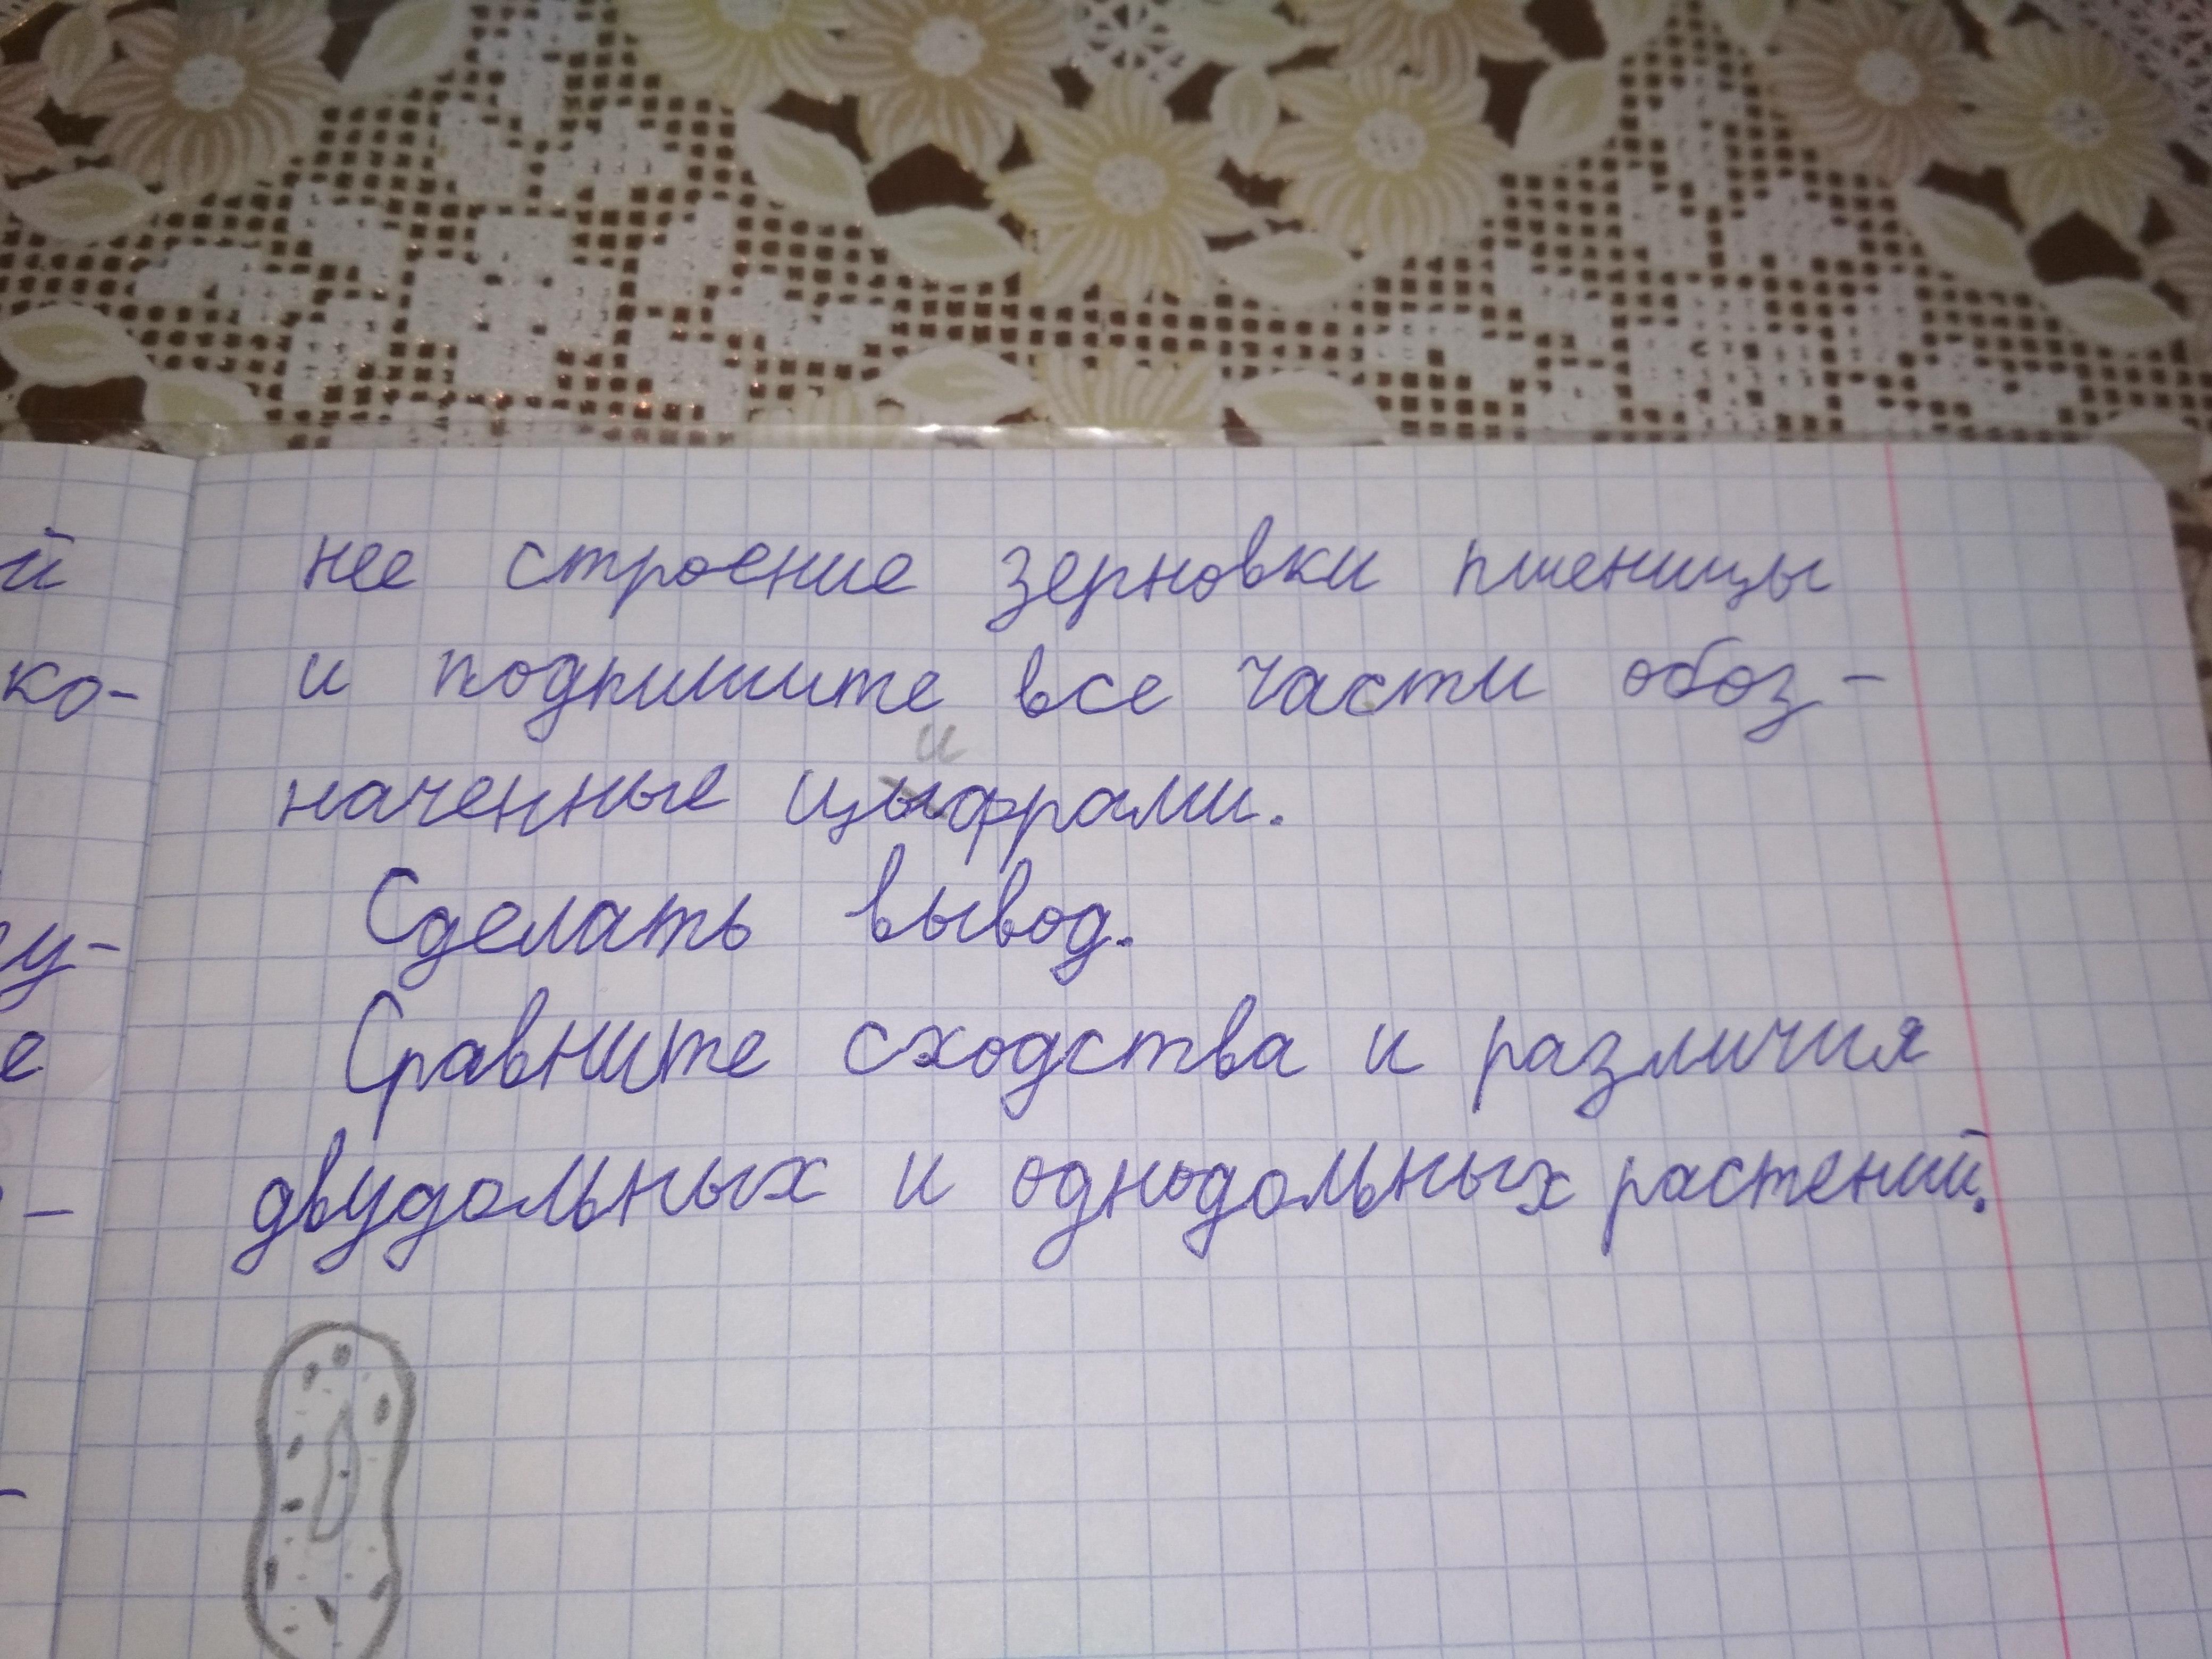 й
ко-
у-
е
нее строение зерновки пшеницы
и подпишите все части обоз-
наченные цифрами.
Сделать вывод.
Сравните сходства и различия
двудольных и однодольных растений.